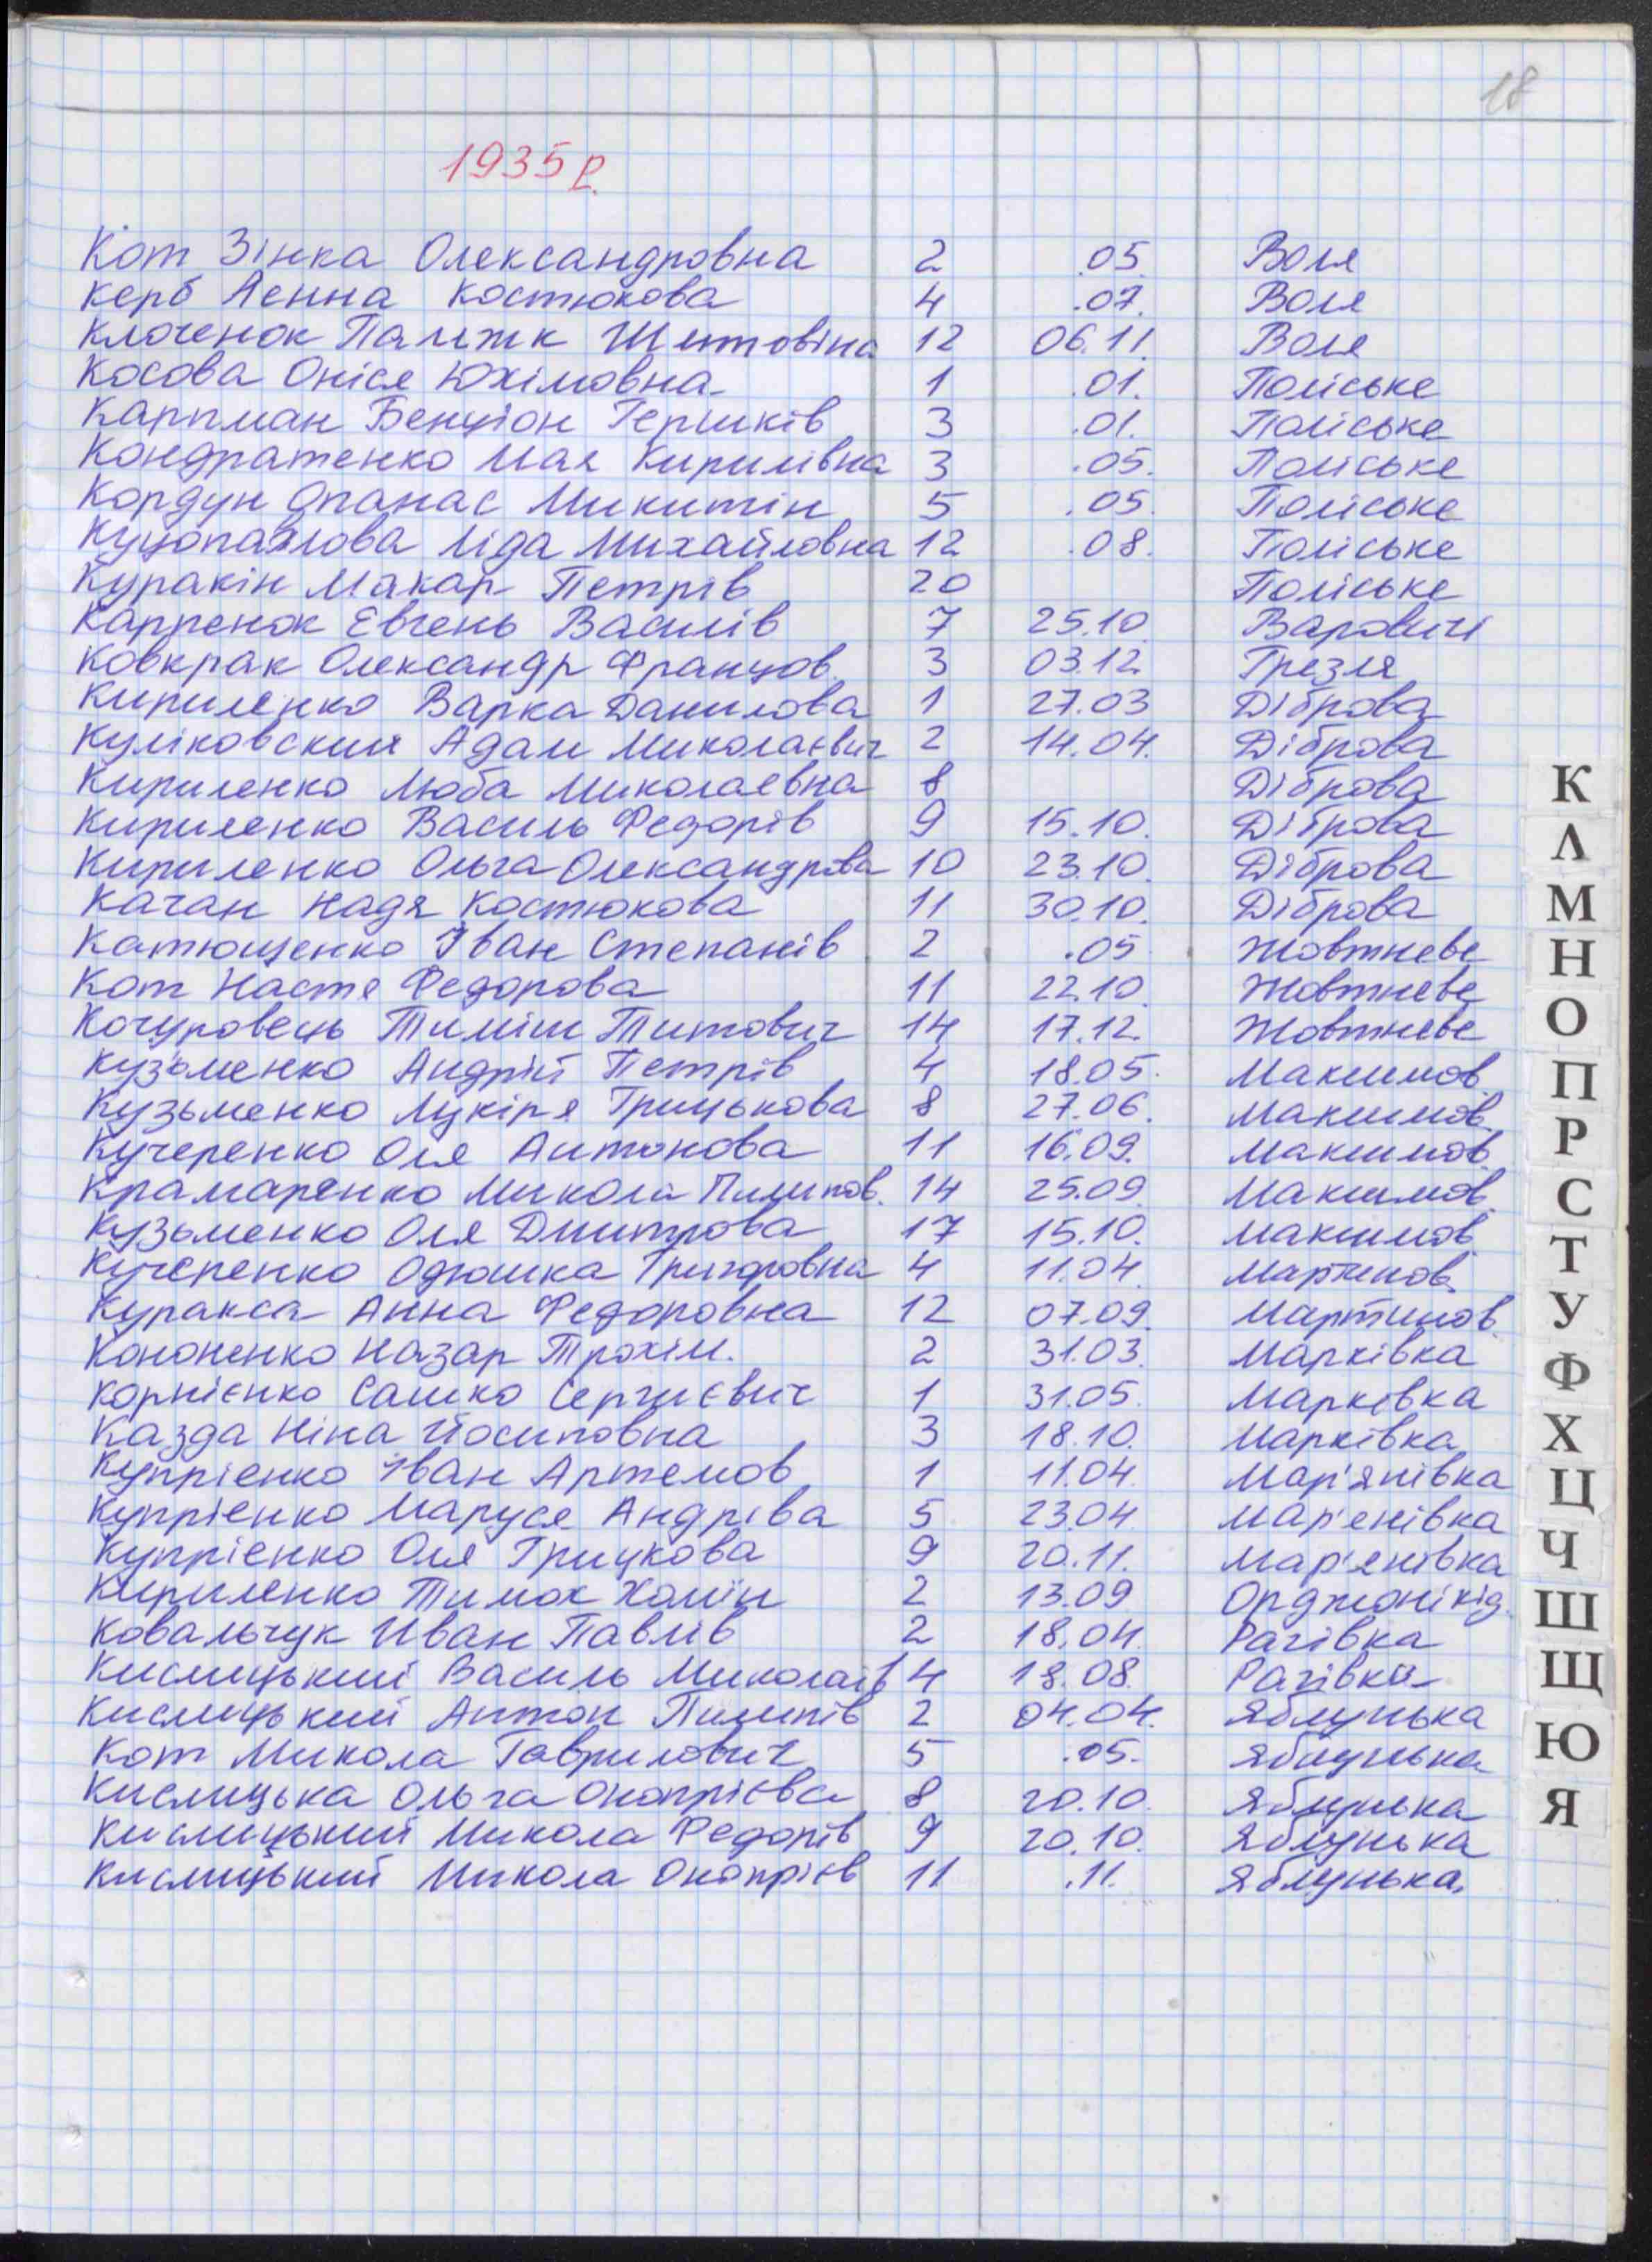 18
1935 р.
Кот Зінка Олександровна 2 .05. Воля
Керб Ленна Костюкова 4 .07. Воля
Клоченок 12 06.11. Воля
Косова Оніся Юхімовна 1 .01. Поліське
Карпман Бенціон Гершків 3 .01. Поліське
Кондратенко Мая Кирилівна 3 .05. Поліське
Кордун Опанас Микитін 5 .05. Поліське
Ліда Михайловна 12 .08. Поліське
Куракін Макар Петрів 20 Поліське
Карпенок Евгень Василів 7 25.10 Варовичі
Ковкрак Олександр Францов. 3 03.12 Грезля
Кириленко Варка Данилова 1 27.03 Діброва
Куліковский Адам Миколаєвич 2 14.04. Діброва
Кириленко Люба Миколаевна 8 Діброва
Кириленко Василь Федорів 9 15.10. Діброва
Кириленко Ольга Олександрова 10 23.10. Діброва
Качан Надя Костюкова 11 30.10. Діброва
Катющенко Іван Степанів 2 .05 Жовтневе
Кот Настя Федорова 11 22.10. Жовтневе
Кочуровець Тиміш Титович 14 17.12. Жовтневе
Кузьменко Андрій Петрів 4 18.05. Максимов.
Кузьменко Лукіря Грицькова 8 27.06. Максимов.
Кучеренко Оля Антонова 11 16.09. Максимов.
Крамаренко Микола Пилипов. 14 25.09. Максимов.
Кузьменко Оля Дмитрова 17 15.10. Максимов.
Кучеренко Одюшка Григоровна 4 11.04. Мартинов.
Куракса Анна Федоровна 12 07.09. Мартинов.
Кононенко Назар Трохим. 2 31.03. Марківка
Корнієнко Сашко Сергиєвич 1 31.05. Марківка
Казда Ніна Йосиповна 3 18.10. Марківка
Купрієнко Іван Артемов 1 11.04. Мар'янівка
Купрієнко Маруся Андріва 5 23.04. Мар'енівка
Купрієнко Оля Грицкова 9 20.11. Мар'енівка
Кириленко Тимох Хомін 2 13.09 Орджонікід.
Ковальчук Иван Павлів 2 18.04. Рагівка
Кислицький Василь Миколаїв 4 18.08. Рагівка
Кислицький Антон Пилипів 2 04.04. Яблунька
Кот Микола Гаврилович 5 .05. Яблунька
Кислицька Ольга Онопрієва 8 20.10. Яблунька
Кислицький Микола Федорів 9 20.10. Яблунька
Кислицький Микола Онопрієв 11 .11. Яблунька.
К
Л
М
Н
О
П
Р
С
Т
У
Ф
Х
Ц
Ч
Ш
Щ
Ю
Я